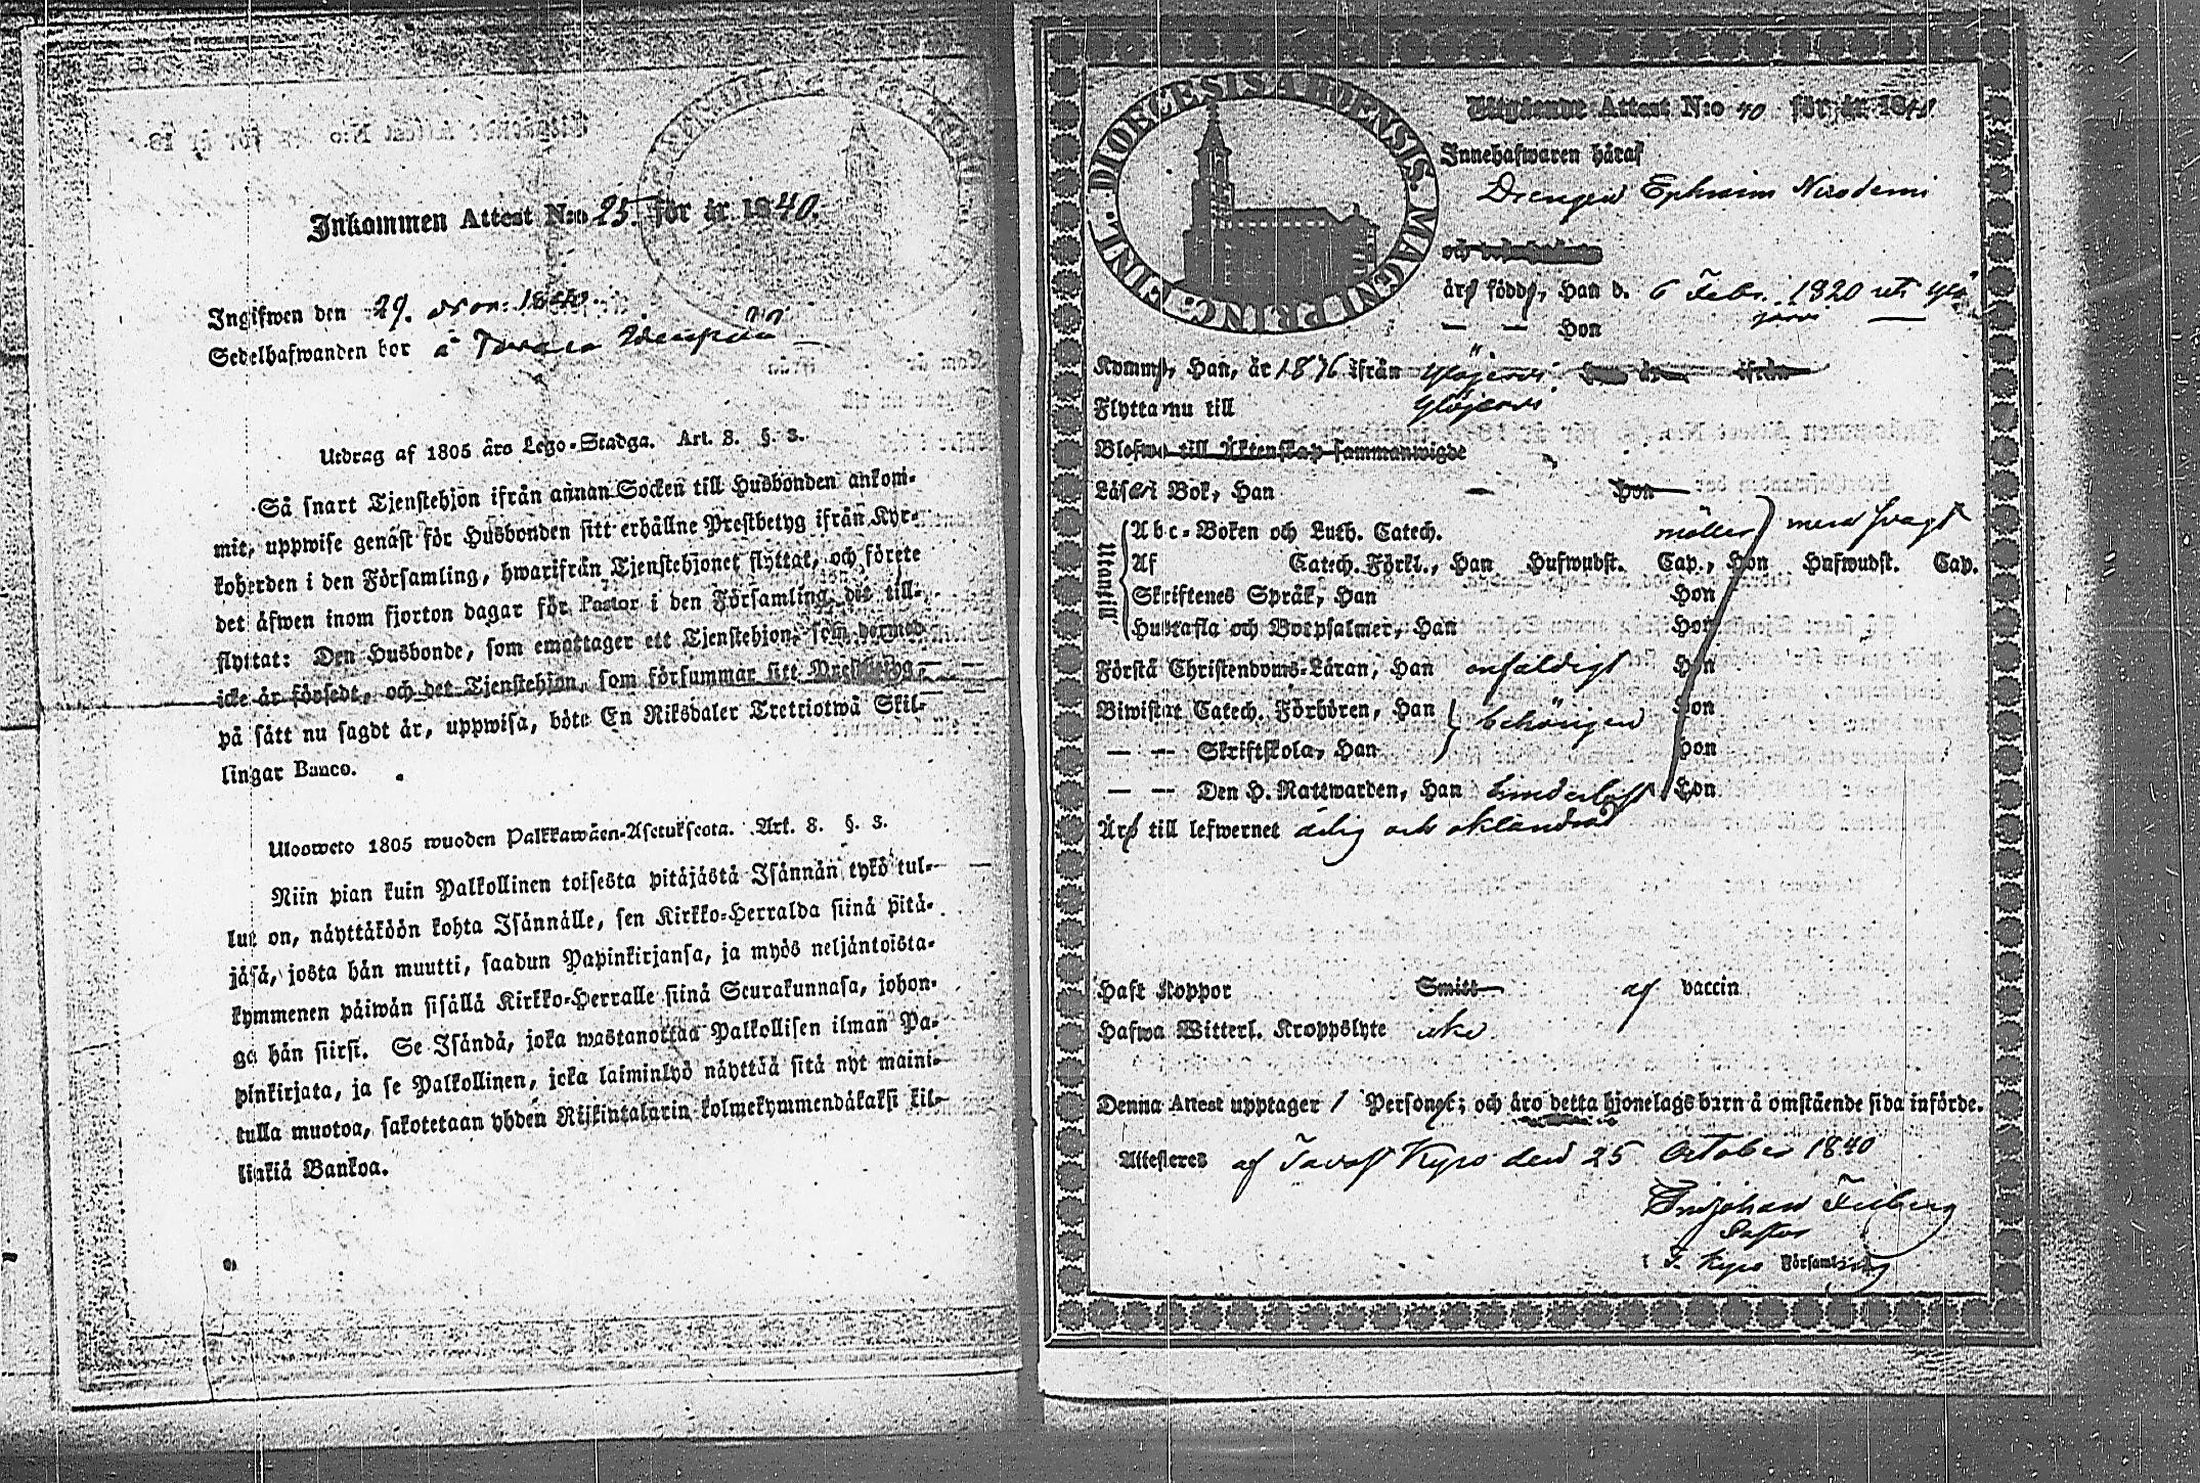 Inkommen Attest N:o 25. för år 1840.
Ingifwen den 29. Nov. 1840.
Sedelhafwanden bor å
Utdrag af 1805 års Lego-Stadga. Art. 8. §. 3.
Så snart Tjenstehjon ifrån annan Socken till Husbonden ankom-
mit, uppwise genåst för Husbonden sitt erhållne Prestbetyg ifrån Kyr-
koherden i den Församling, hwarifrån Tjenstehjonet flyttat, och förete
det åfwen inom fjorton dagar för Pastor i den Församling, dit till-
flyttat: Den Husbonde, som emottager ett Tjenstehjon, som dermed
icke år försedt, och det Tjenstehjon, som försummar sitt Prestbetyg,
på sått nu sagdt år, uppwisa, böte En Riksdaler Tretriotwå Skil-
lingar Banco.
Ulosweto 1805 wuoden Palkkawåen-Asetuksesta. Art. 8. §. 3.
Niin pian kuin Palkollinen toisesta pitåjåstå Isånnån tykö tul-
lut on, nåyttåköön kohta Isånnålle, sen Kirkko-Herralda siinå pitå-
jåså, josta hån muutti, saadun Papinkirjansa, ja myös neljåntoista-
kymmenen påiwån sisållå Kirkko-Herralle siinå Seurakunnasa, johon-
ga hån siirsi. Se Isåndå, joka wastanottaa Palkollisen ilman Pa-
pinkirjata, ja se Palkollinen, joka laiminlyö nåyttåå sitå nyt maini-
tulla muotoa, sakotetaan yhden Riikintalarin kolmekymmendåkaksi kil-
linkiå Bankoa.
DIOECESIS ABOENSIS. MAGNI PRINC. FINL.
Utgående Attest N:o 40 för år 1840.
Innehafwaren håraf
Drengen Ephraim Nicodemi
och
år född, Han d. 6 Febr. 1820 uti Ylö
järvi
— — Hon
Kommit, Han, år 1876 ifrån Ylöjerwi.
Flytta nu till Ylöjerwi
Blefwo till Åktenskap sammanwigde
Låser i Bok, Han — Hon
Utantill
Abc-Boken och Luth. Catech. med swagt
Af Catech. Förkl., Han Hufwudst. Cap., Hon Hufwudst. Cap.
Skriftenes Språk, Han Hon
Hustafla och Botpsalmer, Han Hon
Förstå Christendoms-Låran, Han enfåldigt Hon
Biwistat Catech. Förhören, Han behörigen Hon
— — Skriftskola, Han Hon
— — Den H. Nattwarden, Han hinderlöst Hon
År till lefwernet ärlig och oklandrad
Haft Koppor Smitt af vaccin
Hafwa Witterl. Kroppslyte icke
Denna Attest upptager 1 Personer; och åro detta hjonelags barn å omstående sida införde.
Attesteres af Tavast Kyro den 25 October 1840
Pastor
i T. Kyro Församling